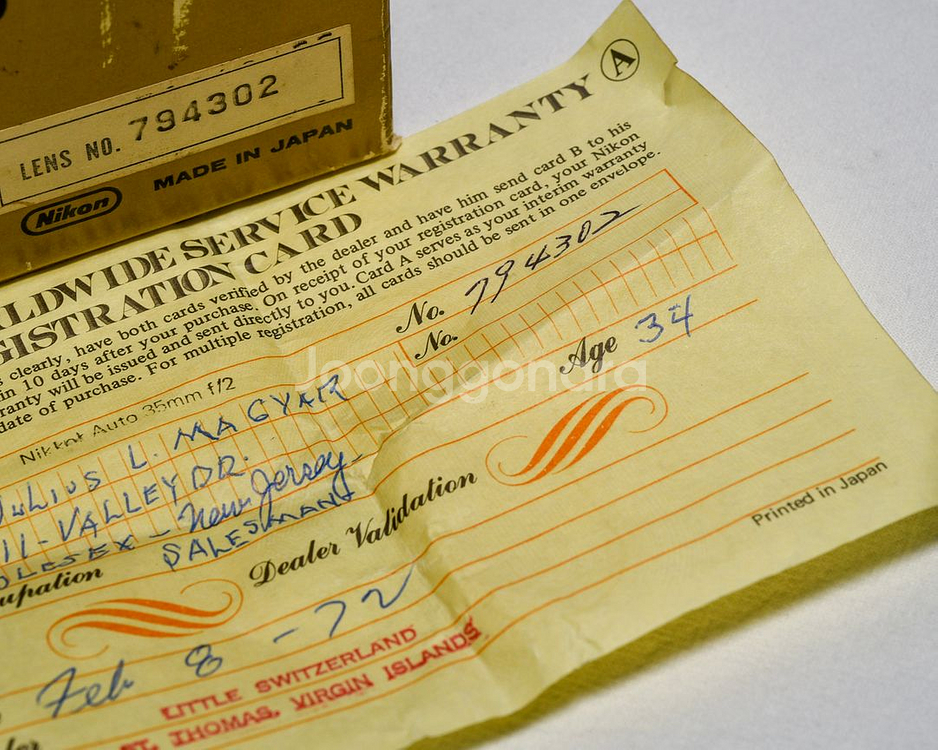 LENS NO. 794302
MADE IN JAPAN
Nikon
A
SERVICE WARRANTY
CARD
clearly, have both cards verified by the dealer and have him send card B to his
in 10 days after your purchase. On receipt of your registration card, your Nikon
will be issued and sent directly to you. Card A serves as your interim warranty
date of purchase. For multiple registration, all cards should be sent in one envelope.
No. 794302
No.
Nikkor Auto 35mm f/2
Age 34
L. MAGYAR
VALLEY DR.
New Jersey
SALESMAN
Dealer Validation
Printed in Japan
Feb 8 - 72
LITTLE SWITZERLAND
ST. THOMAS, VIRGIN ISLANDS
Joonggonara